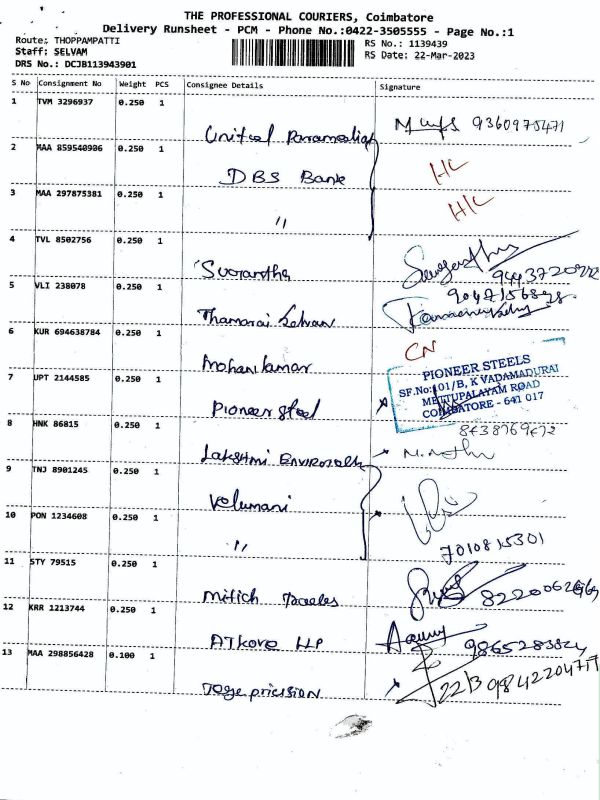 THE PROFESSIONAL COURIERS, Coimbatore
Delivery Runsheet - PCM - Phone No.:0422-3505555 - Page No.:1
Route: THOPPAMPATTI
Staff: SELVAM
DRS No.: DCJB113943901
RS No.: 1139439
RS Date: 22-Mar-2023
S No Consignment No Weight PCS Consignee Details Signature
1 TVM 3296937 0.250 1
United 9360975471
2 MAA 859540906 0.250 1
DBS Bank
3 MAA 297875381 0.250 1
"
4 TVL 8502756 0.250 1
5 VLI 238078 0.250 1
Thamarai Selvan
6 KUR 694638784 0.250 1
Mohan kumar CN
7 UPT 2144585 0.250 1
Pioneer steel
PIONEER STEELS
SF.No:101/B, K VADAMADURAI
METTUPALAYAM ROAD
COIMBATORE - 641 017
8 HNK 86815 0.250 1
Lakshmi
9 TNJ 8901245 0.250 1
Velumani
10 PON 1234608 0.250 1
" 7010815301
11 STY 79515 0.250 1
12 KRR 1213744 0.250 1
ATkore LLP
13 MAA 298856428 0.100 1
22/3